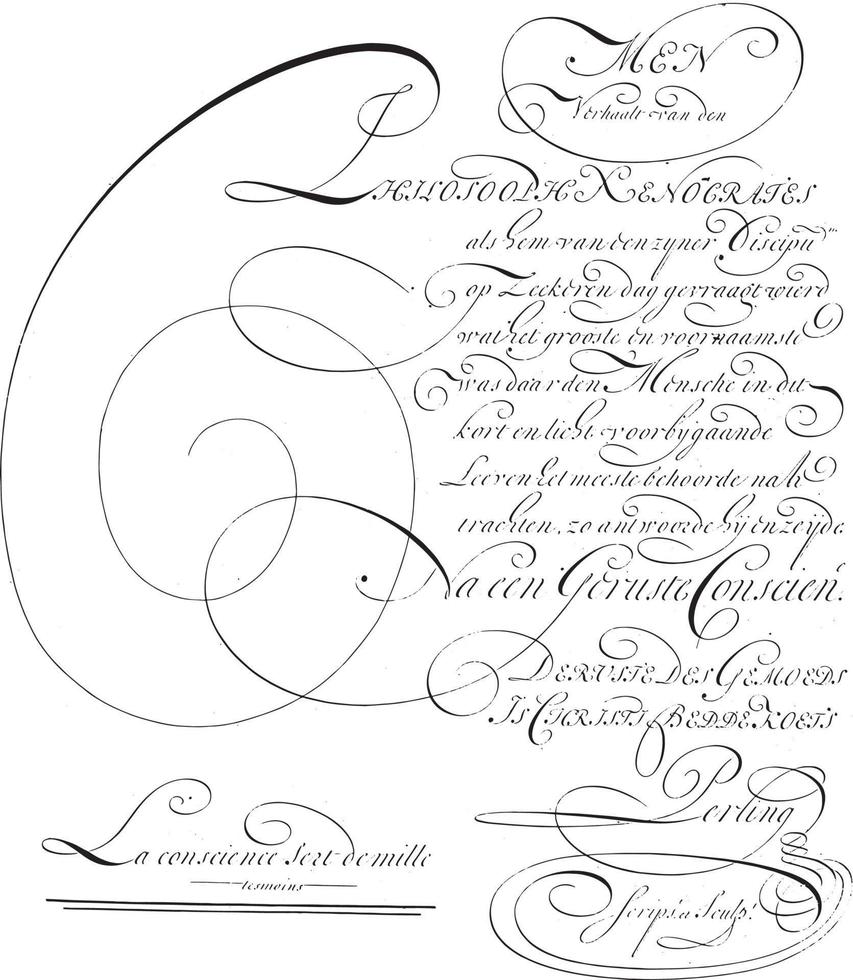 MEN
Verhaalt van den
PHILOSOOPH XENOCRATES
als hem van een zyner Discipu"
op Zeekeren dag gevraagt wierd
wat het grooste en voornaamste
was daar den Mensche in dit
kort en licht voorbijgaande
Leeven het meeste behoorde nah
trachten, zo antwoorde hij en zeijde.
Na een Geruste Conscien.
DE RUSTE DES GEMOEDS
IS CHRISTI BEDDE KOETS
Perling
Scrips. et Sculp!
La conscience sert de mille
tesmoins